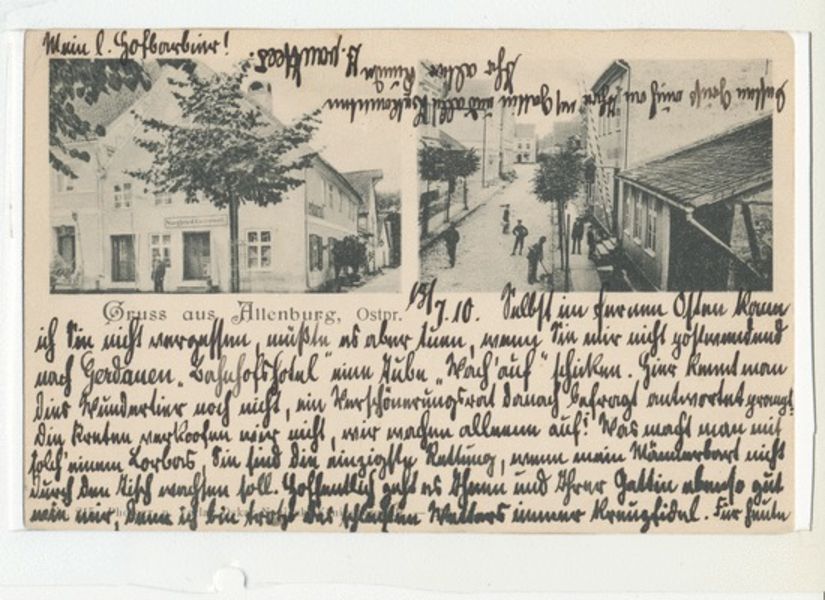 Mein l. Hofbarbier!
Gruss aus Allenburg, Ostpr.
13/7.10. Selbst im fernen Osten kann
ich Sie nicht vergessen, müßte es aber tuen, wenn Sie mir nicht postwendend
nach Gerdauen „Bahnhofshotel" eine Tube „Wach' auf" schicken. Hier kennt man
dies Wundertier noch nicht, ein Verschönerungsrat danach befragt antwortet prompt:
Die Kreten verkoofen wir nicht, wir wachen alleene auf! Was macht man mit
solch' einem Lorbas, Sie sind die einzigste Rettung, wenn mein Männerbart nicht
durch den Tisch wachsen soll. Hoffentlich geht es Ihnen und Ihrer Gattin ebenso gut
wie mir, denn ich bin trotz des schlechten Wetters immer kreuzfidel. Für heute
Ihr alter Kunde